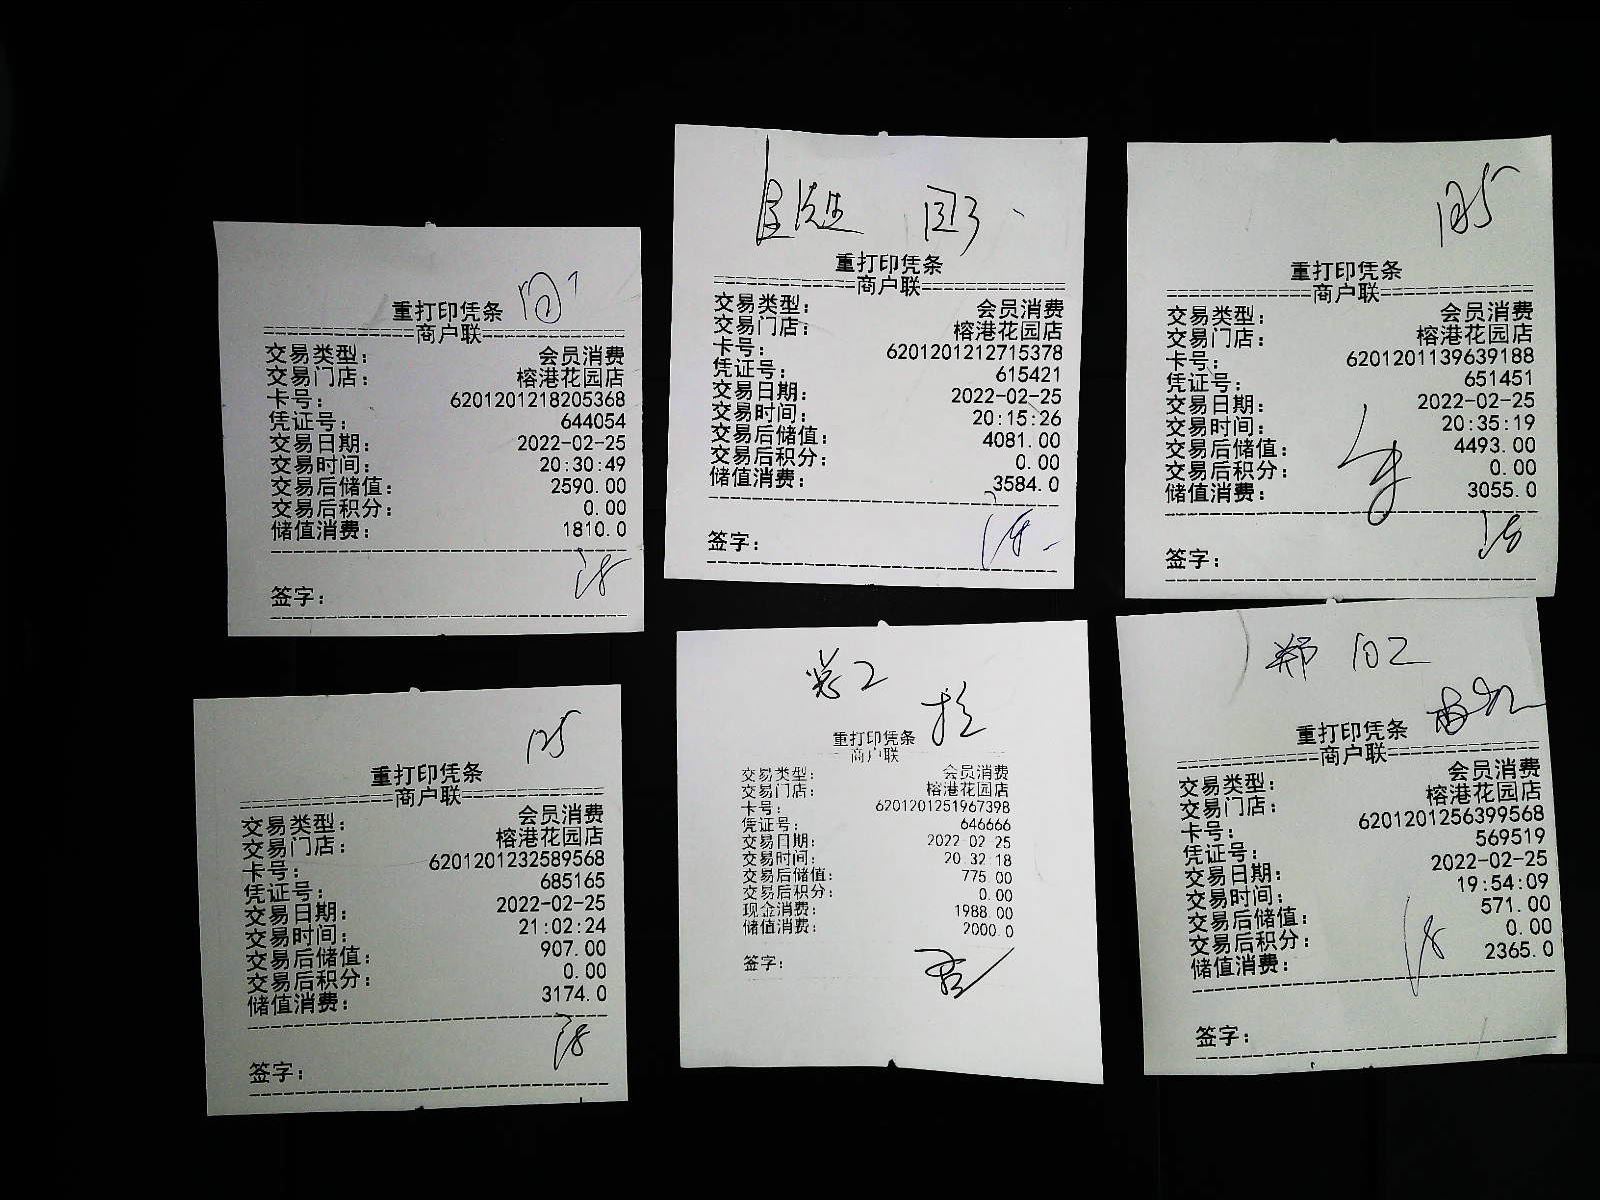 重打印凭条
商户联
交易类型: 会员消费
交易门店: 榕港花园店
卡号: 6201201218205368
凭证号: 644054
交易日期: 2022-02-25
交易时间: 20:30:49
交易后储值: 2590.00
交易后积分: 0.00
储值消费: 1810.0
签字:
重打印凭条
商户联
交易类型: 会员消费
交易门店: 榕港花园店
卡号: 6201201212715378
凭证号: 615421
交易日期: 2022-02-25
交易时间: 20:15:26
交易后储值: 4081.00
交易后积分: 0.00
储值消费: 3584.0
签字:
重打印凭条
商户联
交易类型: 会员消费
交易门店: 榕港花园店
卡号: 6201201139639188
凭证号: 651451
交易日期: 2022-02-25
交易时间: 20:35:19
交易后储值: 4493.00
交易后积分: 0.00
储值消费: 3055.0
签字:
重打印凭条
商户联
交易类型: 会员消费
交易门店: 榕港花园店
卡号: 6201201232589568
凭证号: 685165
交易日期: 2022-02-25
交易时间: 21:02:24
交易后储值: 907.00
交易后积分: 0.00
储值消费: 3174.0
签字:
重打印凭条
商户联
交易类型: 会员消费
交易门店: 榕港花园店
卡号: 6201201251967398
凭证号: 646666
交易日期: 2022 02 25
交易时间: 20 32 18
交易后储值: 775 00
交易后积分: 0.00
现金消费: 1988 00
储值消费: 2000.0
签字:
郑
重打印凭条
商户联
交易类型: 会员消费
交易门店: 榕港花园店
卡号: 6201201256399568
凭证号: 569519
交易日期: 2022-02-25
交易时间: 19:54:09
交易后储值: 571.00
交易后积分: 0.00
储值消费: 2365.0
签字: